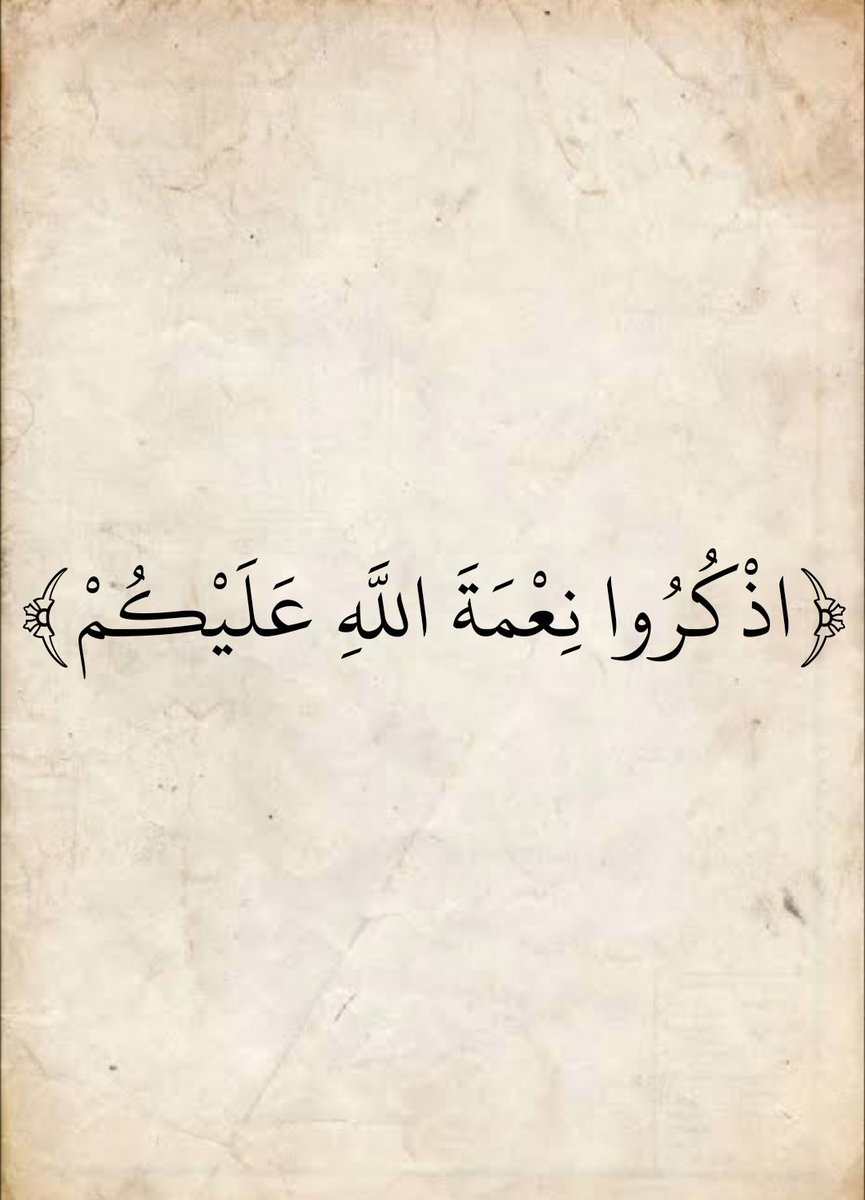 ﴿اذْكُرُوا نِعْمَةَ اللَّهِ عَلَيْكُمْ﴾